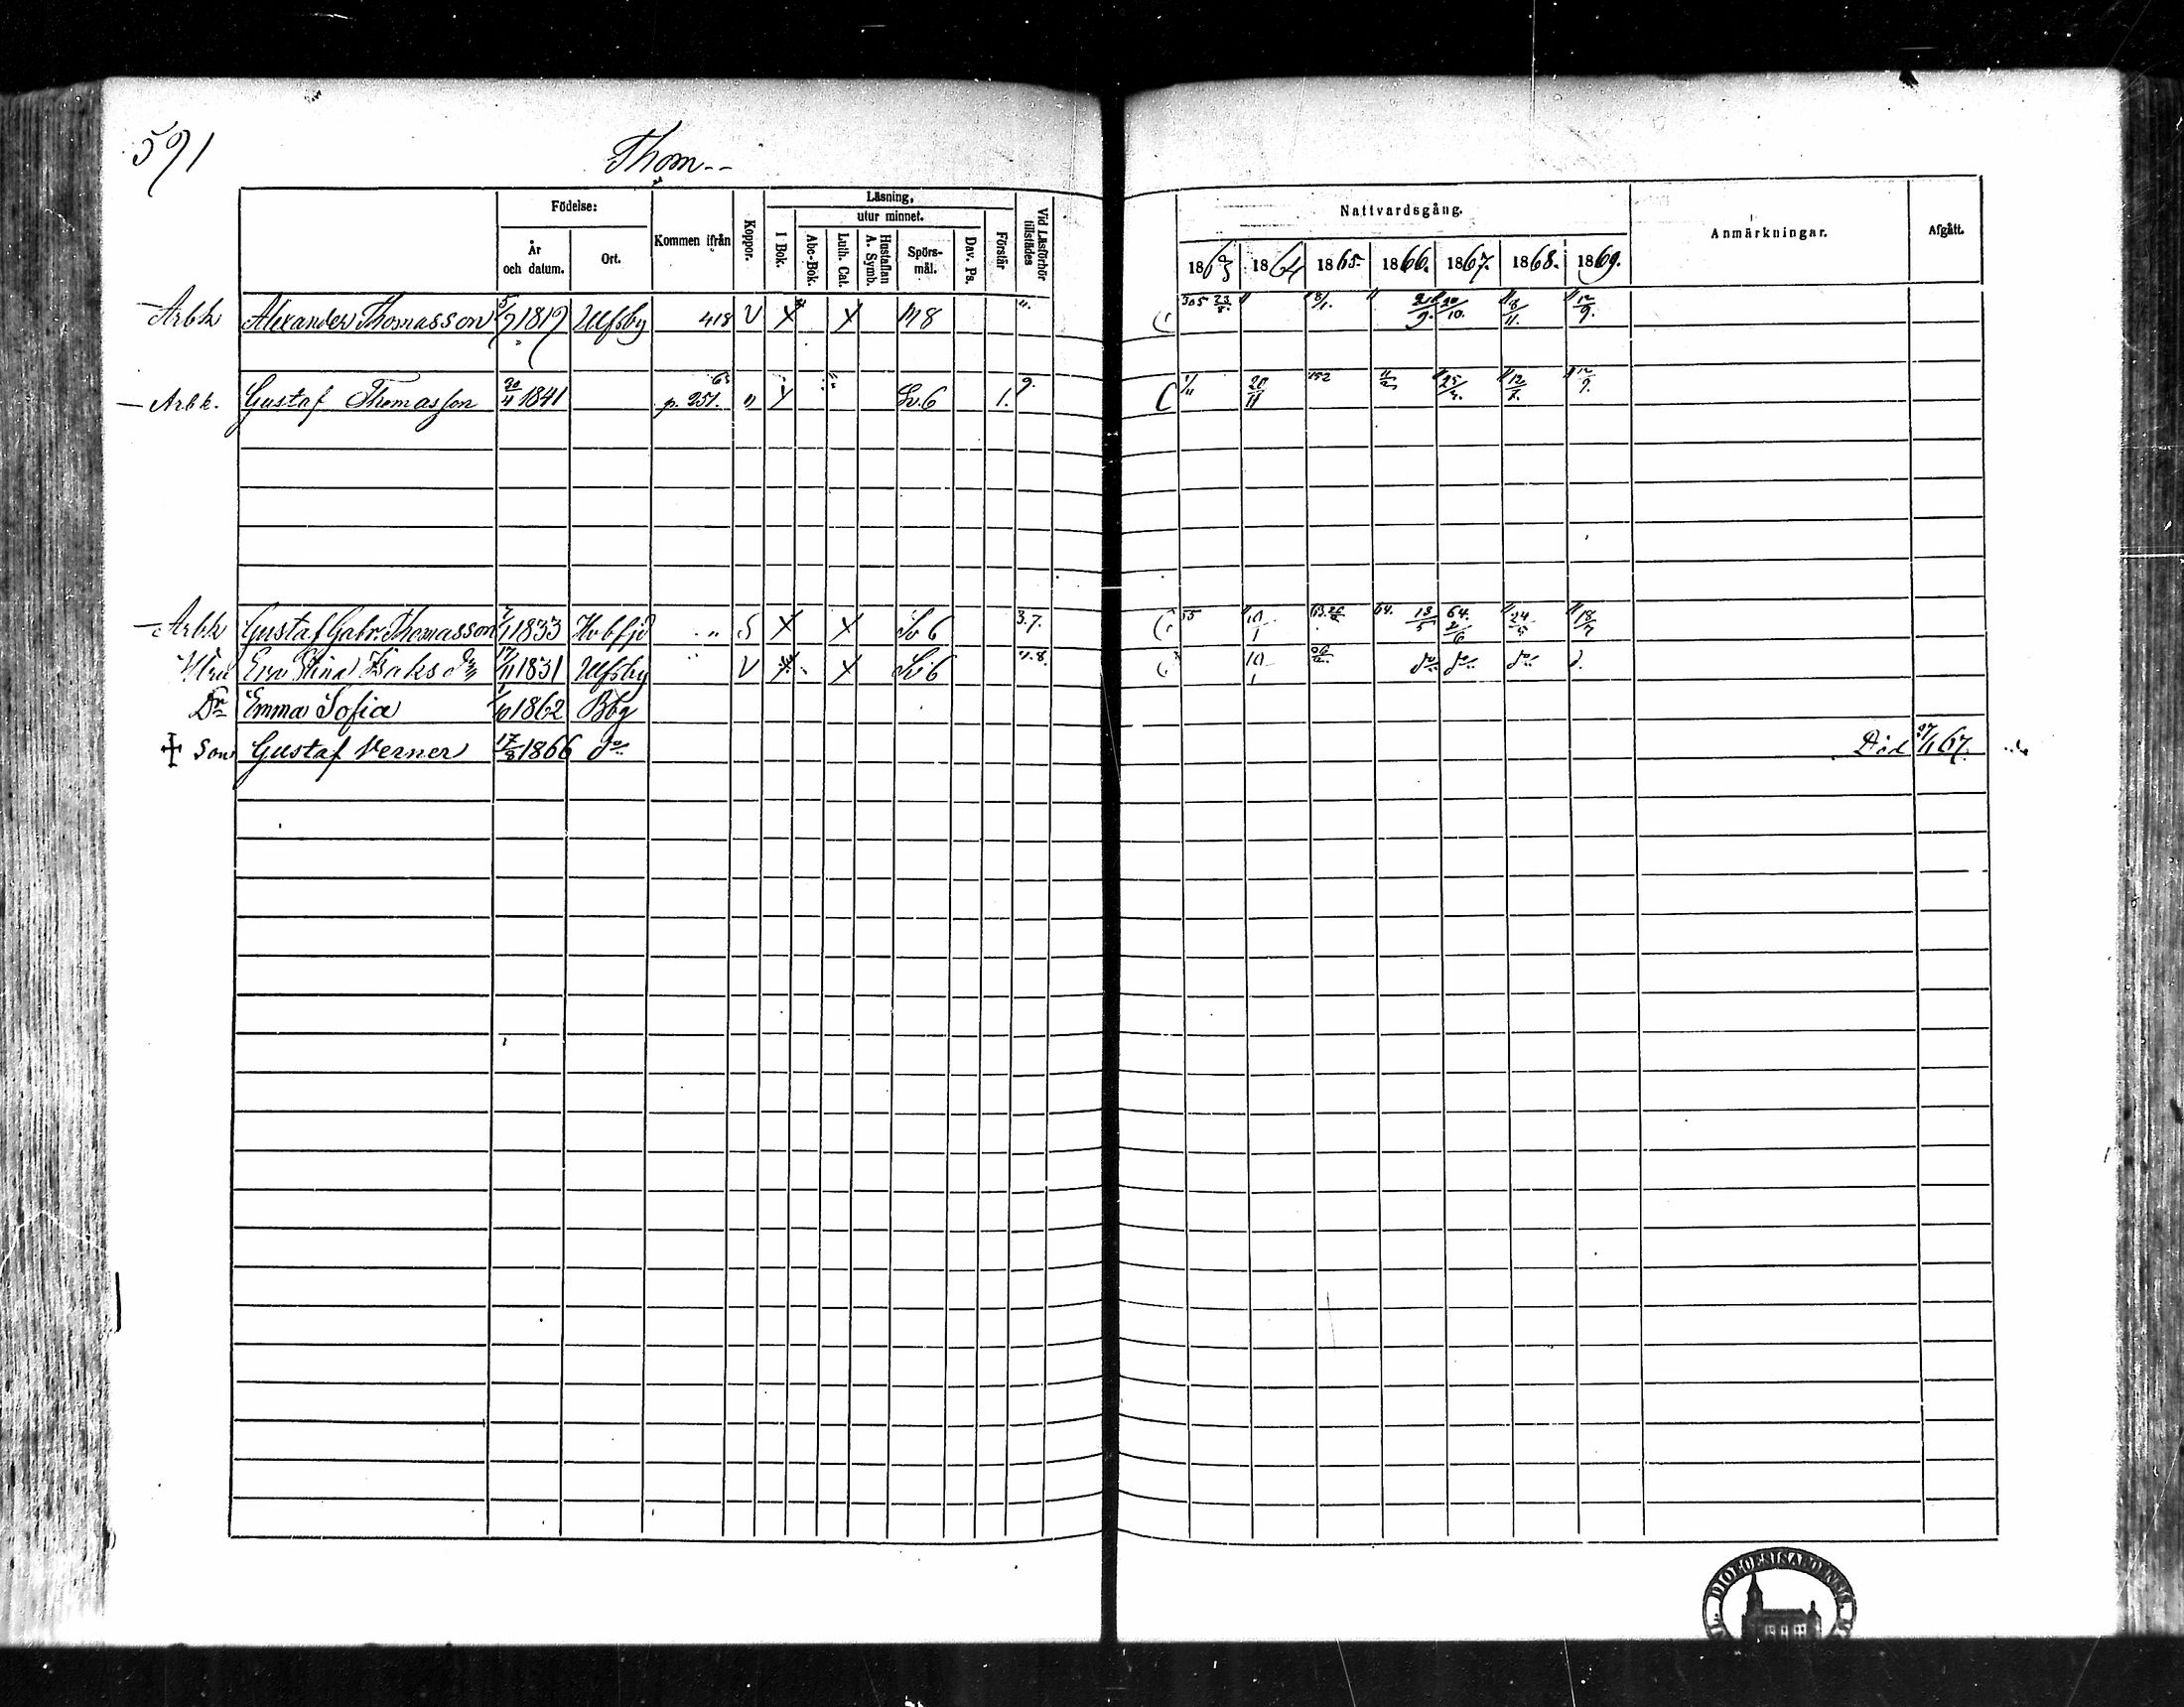 591
Thom--
Födelse: Kommen ifrån Koppor. Läsning, Vid Läsförhör tillstädes Nattvardsgång. Anmärkningar. Afgått.
År och datum. Ort. I Bok. utur minnet. Förstår
Abc-Bok. Luth. Cat. Hustaflan A. Symb. Spörs-mål. Dav. Ps. 1863 1864 1865. 1866. 1867. 1868. 1869.
Arbk Alexander Thomasson 5/7 1819 Ulfsby 418 V X X 305 23/8 8/1. 20/10. 8/11. 12/9.
Arbk. Gustaf Thomasson 20/4 1841 p. 251. 63 " Sv.6 1. 9. 1/11 20/11 152 11/2 25/4. 12/7. 12/9.
Arbk Gustaf Gabr. Thomasson 1833 Hvbfjd " S X X Sv 6 3.7. 55 10/1 64. 13/5 64. 2/6 24/5 18/7
Hru Eva Stina Isaks dr 17/11 1831 Ulfsby V X X Sv 6 7.8. 10/1 do do do d.
Dr Emma Sofia 1/10 1862 Bbg
Son Gustaf Verner 17/8 1866 do Död 27/1 67.
DIOECESIS ABOENSIS